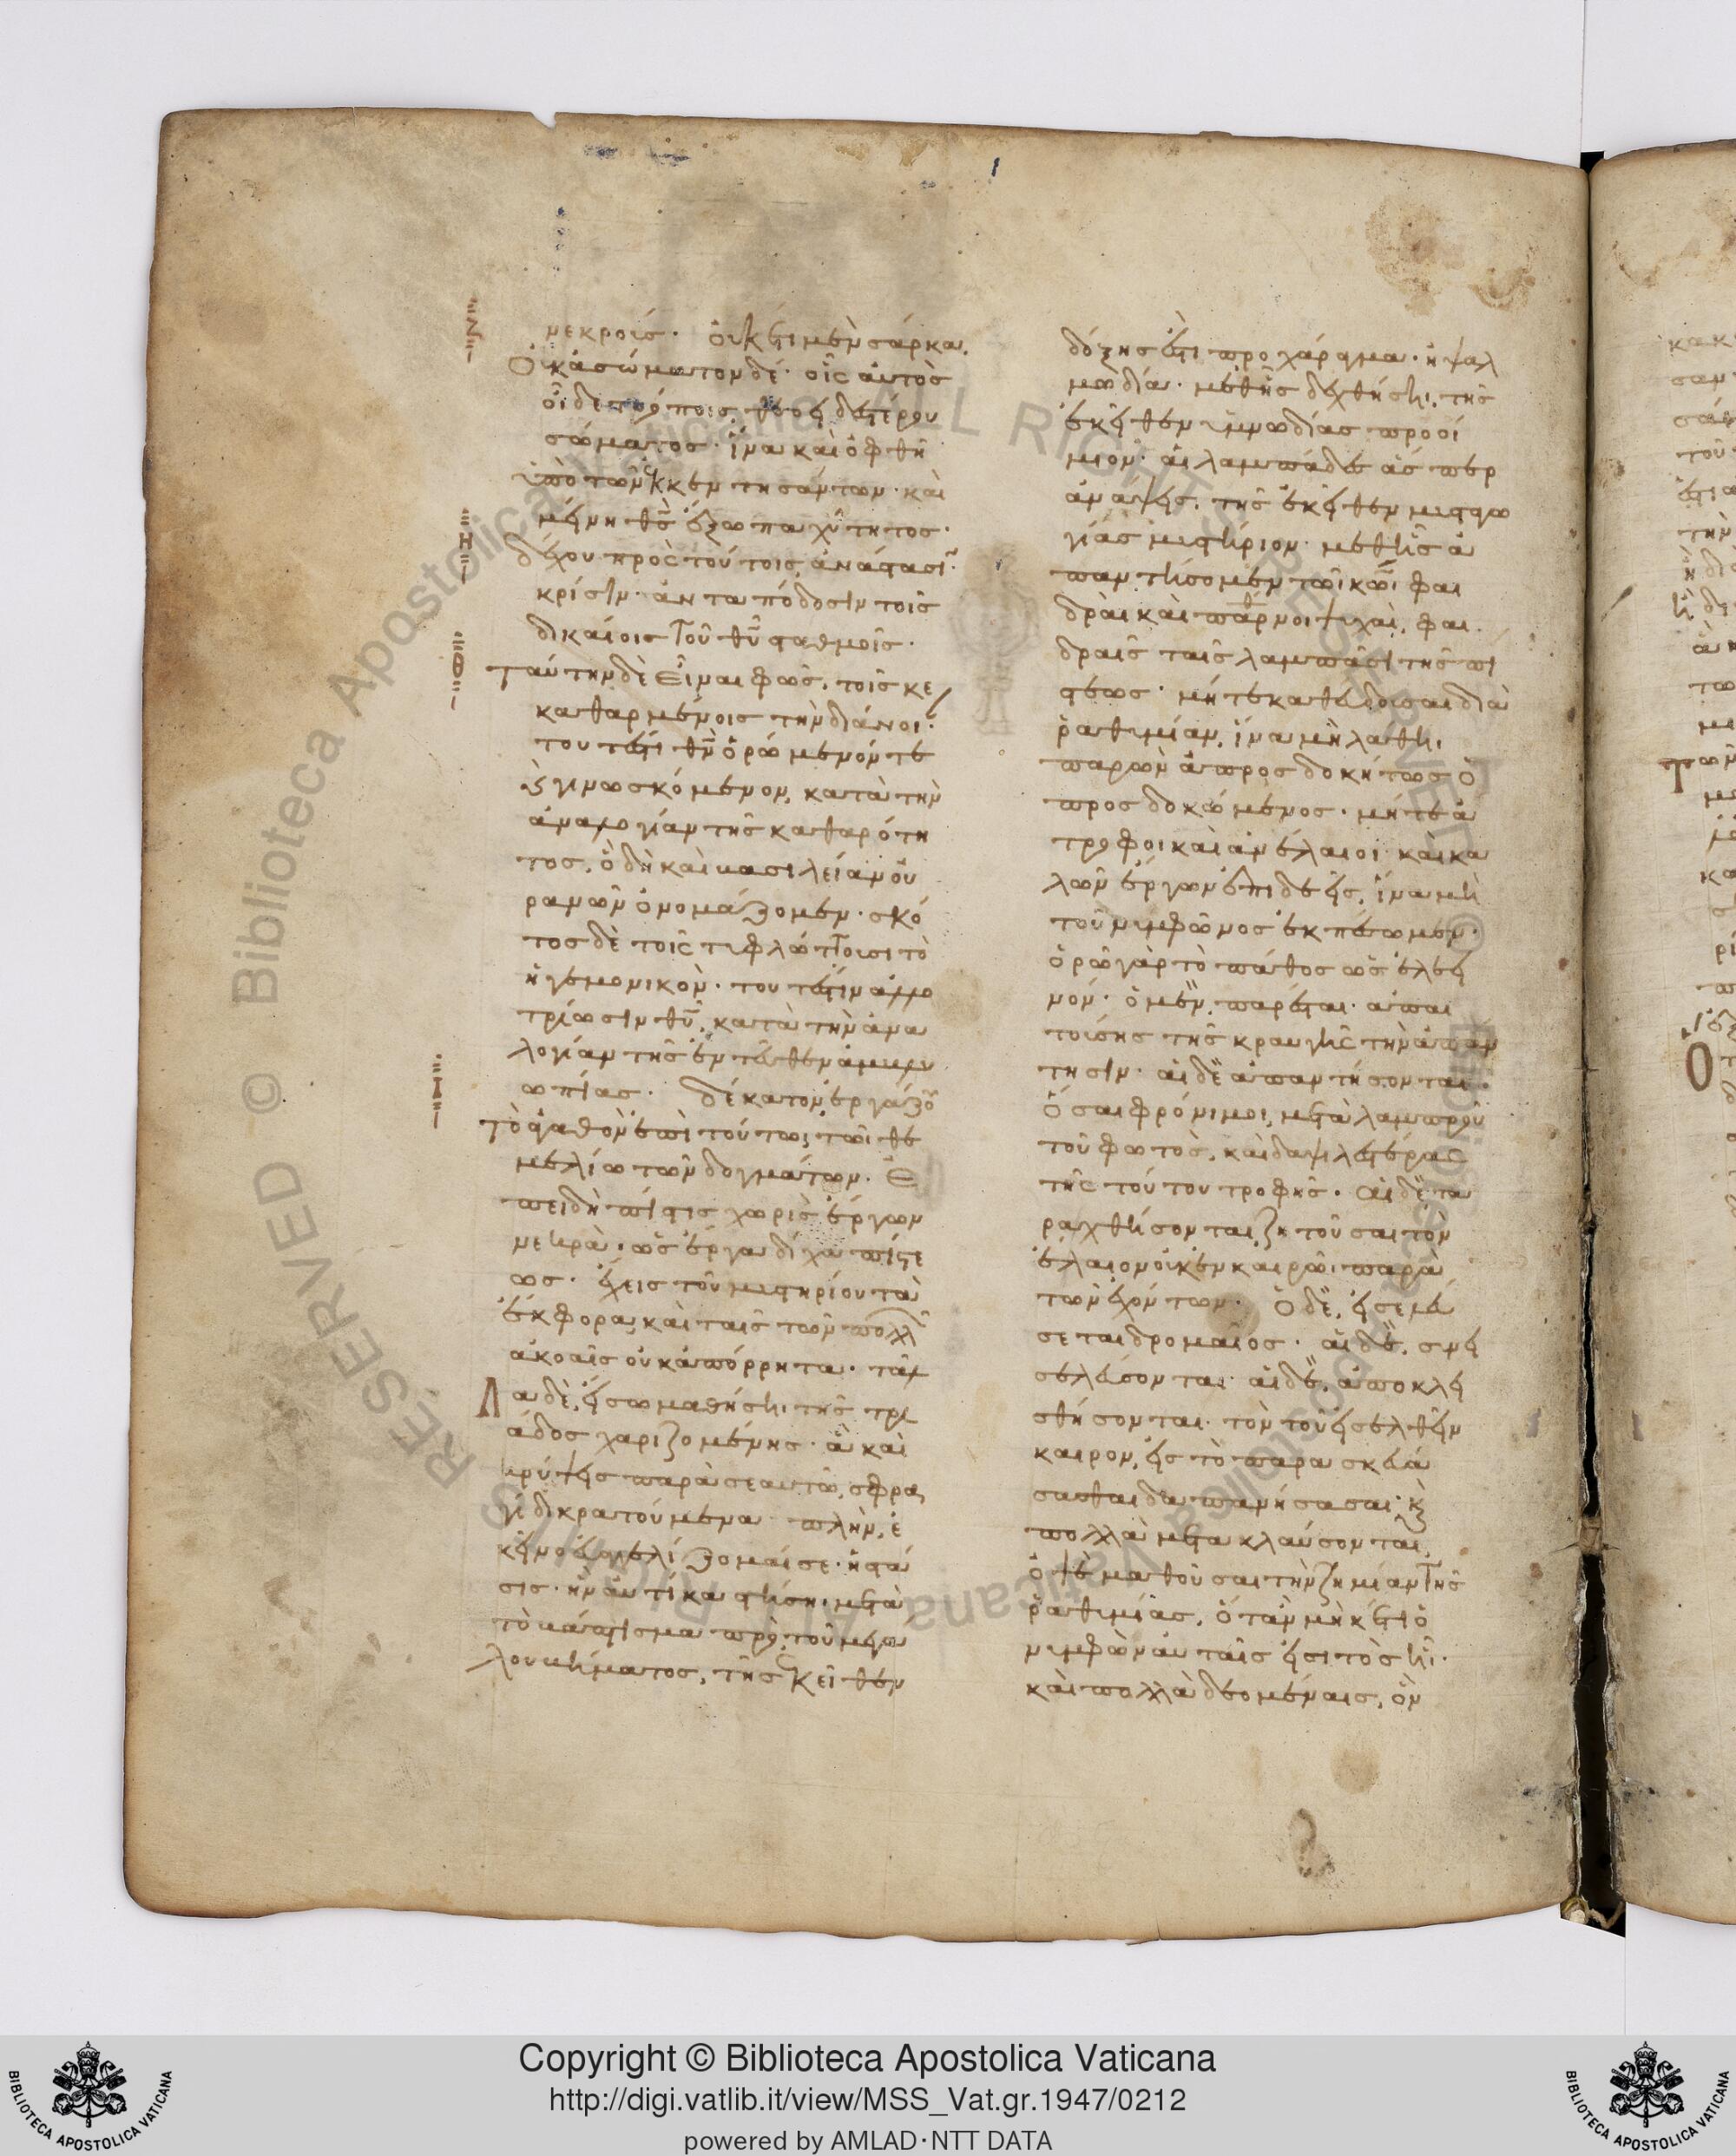 νεκρούς· οὐκ ἔτι μὲν σάρκα,
οὐκ ἀσώματον δέ· οἷς αὐτὸς
οἶδε τρόποις, θεοειδεστέρου
σώματος· ἵνα καὶ ὀφθῆ
ὑπὸ τῶν ἐκκεντησάντων· καὶ
μείνη θς̅ ἔξω παχύτητος·
δέχου πρὸς τούτοις, ἀνάστασι̅·
κρίσιν· ἀνταπόδοσιν τοῖς
δικαίοις τοῦ θυ̅ σταθμοῖς·
ταύτην δὲ εἶναι φῶς, τοῖς κε
καθαρμένοις τὴν διάνοι
τουτέστι θν̅ ὁρώμενόν τε
καὶ γινωσκόμενον, κατὰ τὴν
ἀναλογίαν τῆς καθαρότη
τος, ὃ δὴ καὶ βασιλείαν οὐ
ρανῶν ὀνομάζομεν· σκό
τος δὲ τοῖς τυφλώττουσι τὸ
ἡγεμονικόν· τουτέστιν ἀλλο
τρίωσιν θυ̅, κατὰ τὴν ἀνα
λογίαν τῆς ἐντεῦθεν ἀμβλυ
ωπίας· δέκατον, ἐργάζου
τὸ ἀγαθὸν ἐπὶ τούτωι τῶι θε
μελίω τῶν δογμάτων. ἐ
πειδὴ πίστις χωρὶς ἔργων
νεκρὰ, ὡς ἔργα δίχα πίστε
ως· ἔχεις τοῦ μυστηρίου τὰ
ἔκφορα, καὶ ταῖς τῶν πολλῶν
ἀκοαῖς οὐκ ἀπόρρητα· τὰ ἄλ
λα δὲ, εἴσω μαθήσηι, τῆς τρι
άδος χαριζομένης· ἃ καὶ
κρύψεις παρὰ σεαυτῶ, σφρα
γίδι κρατούμενα· πλὴν, ἐ
κεῖνο εὐαγγελίζομαί σε· ἡ στά
σις· ἣν αὐτίκα στήσηι μετὰ
τὸ βάπτισμα πρὸ τοῦ μεγά
λου βήματος, τῆς ἐκεῖθεν
δόξης ἐστὶ προχάραγμα· ἡ ψαλ
μωδία· μεθ' ἧς δεχθήσηι, τῆς
ἐκεῖθεν ὑμνωδίας προοί
μιον· αἱ λαμπάδες ἅσπερ
ἀνάψεις, τῆς ἐκεῖθεν φωταγω
γίας μυστήριον· μεθ' ἧς ἀ
παντήσομεν τῶι νυμφίωι φαι
δραὶ καὶ παρθένοι ψυχαὶ, φαι
δραῖς ταῖς λαμπάσι τῆς πί
στεως· μήτε καθεύδουσαι διὰ
ῥαθυμίαν, ἵνα μὴ λάθηι
παρὼν ἀπροσδοκήτως ὁ
προσδοκώμενος· μήτε ἄ
τροφοι καὶ ἀνέλαιοι καὶ κα
λῶν ἔργων ἐπιδεεῖς, ἵνα μὴ
τοῦ νυμφῶνος ἐκπέσωμεν·
ὁρῶ γὰρ τὸ πάθος ὡς ἐλεει
νόν· ὁ μὲν, παρέσται· ἀπαι
τούσης τῆς κραυγῆς τὴν ἀπάν
τησιν· αἱ δὲ ἀπαντήσονται·
ὅσαι φρόνιμοι, μετὰ λαμπροῦ
τοῦ φωτὸς, καὶ δαψιλεστέρας
τῆς τούτου τροφῆς· αἱ δὲ τα
ραχθήσονται, ζητοῦσαι τὸ
ἔλαιον οὐκ ἐν καιρῶι παρὰ
τῶν ἐχόντων· ὁ δὲ, εἰσελεύ
σεται δρομαῖος· αἱ δὲ, συνει
σελεύσονται· αἱ δὲ, ἀποκλει
σθήσονται· τὸν τοῦ εἰσελθεῖν
καιρὸν, εἰς τὸ παρασκευά
σασθαι δαπανήσασαι· καὶ
πολλὰ μετακλαύσονται,
ὀψὲ μαθοῦσαι τὴν ζημίαν τῆς
ῥαθυμίας, ὅταν μηκέτι ὁ
νυμφὼν αὐταῖς εἰσιτὸς ἦι·
καὶ πολλὰ δεομέναις, ὃν
Copyright © Biblioteca Apostolica Vaticana
http://digi.vatlib.it/view/MSS_Vat.gr.1947/0212
powered by AMLAD·NTT DATA